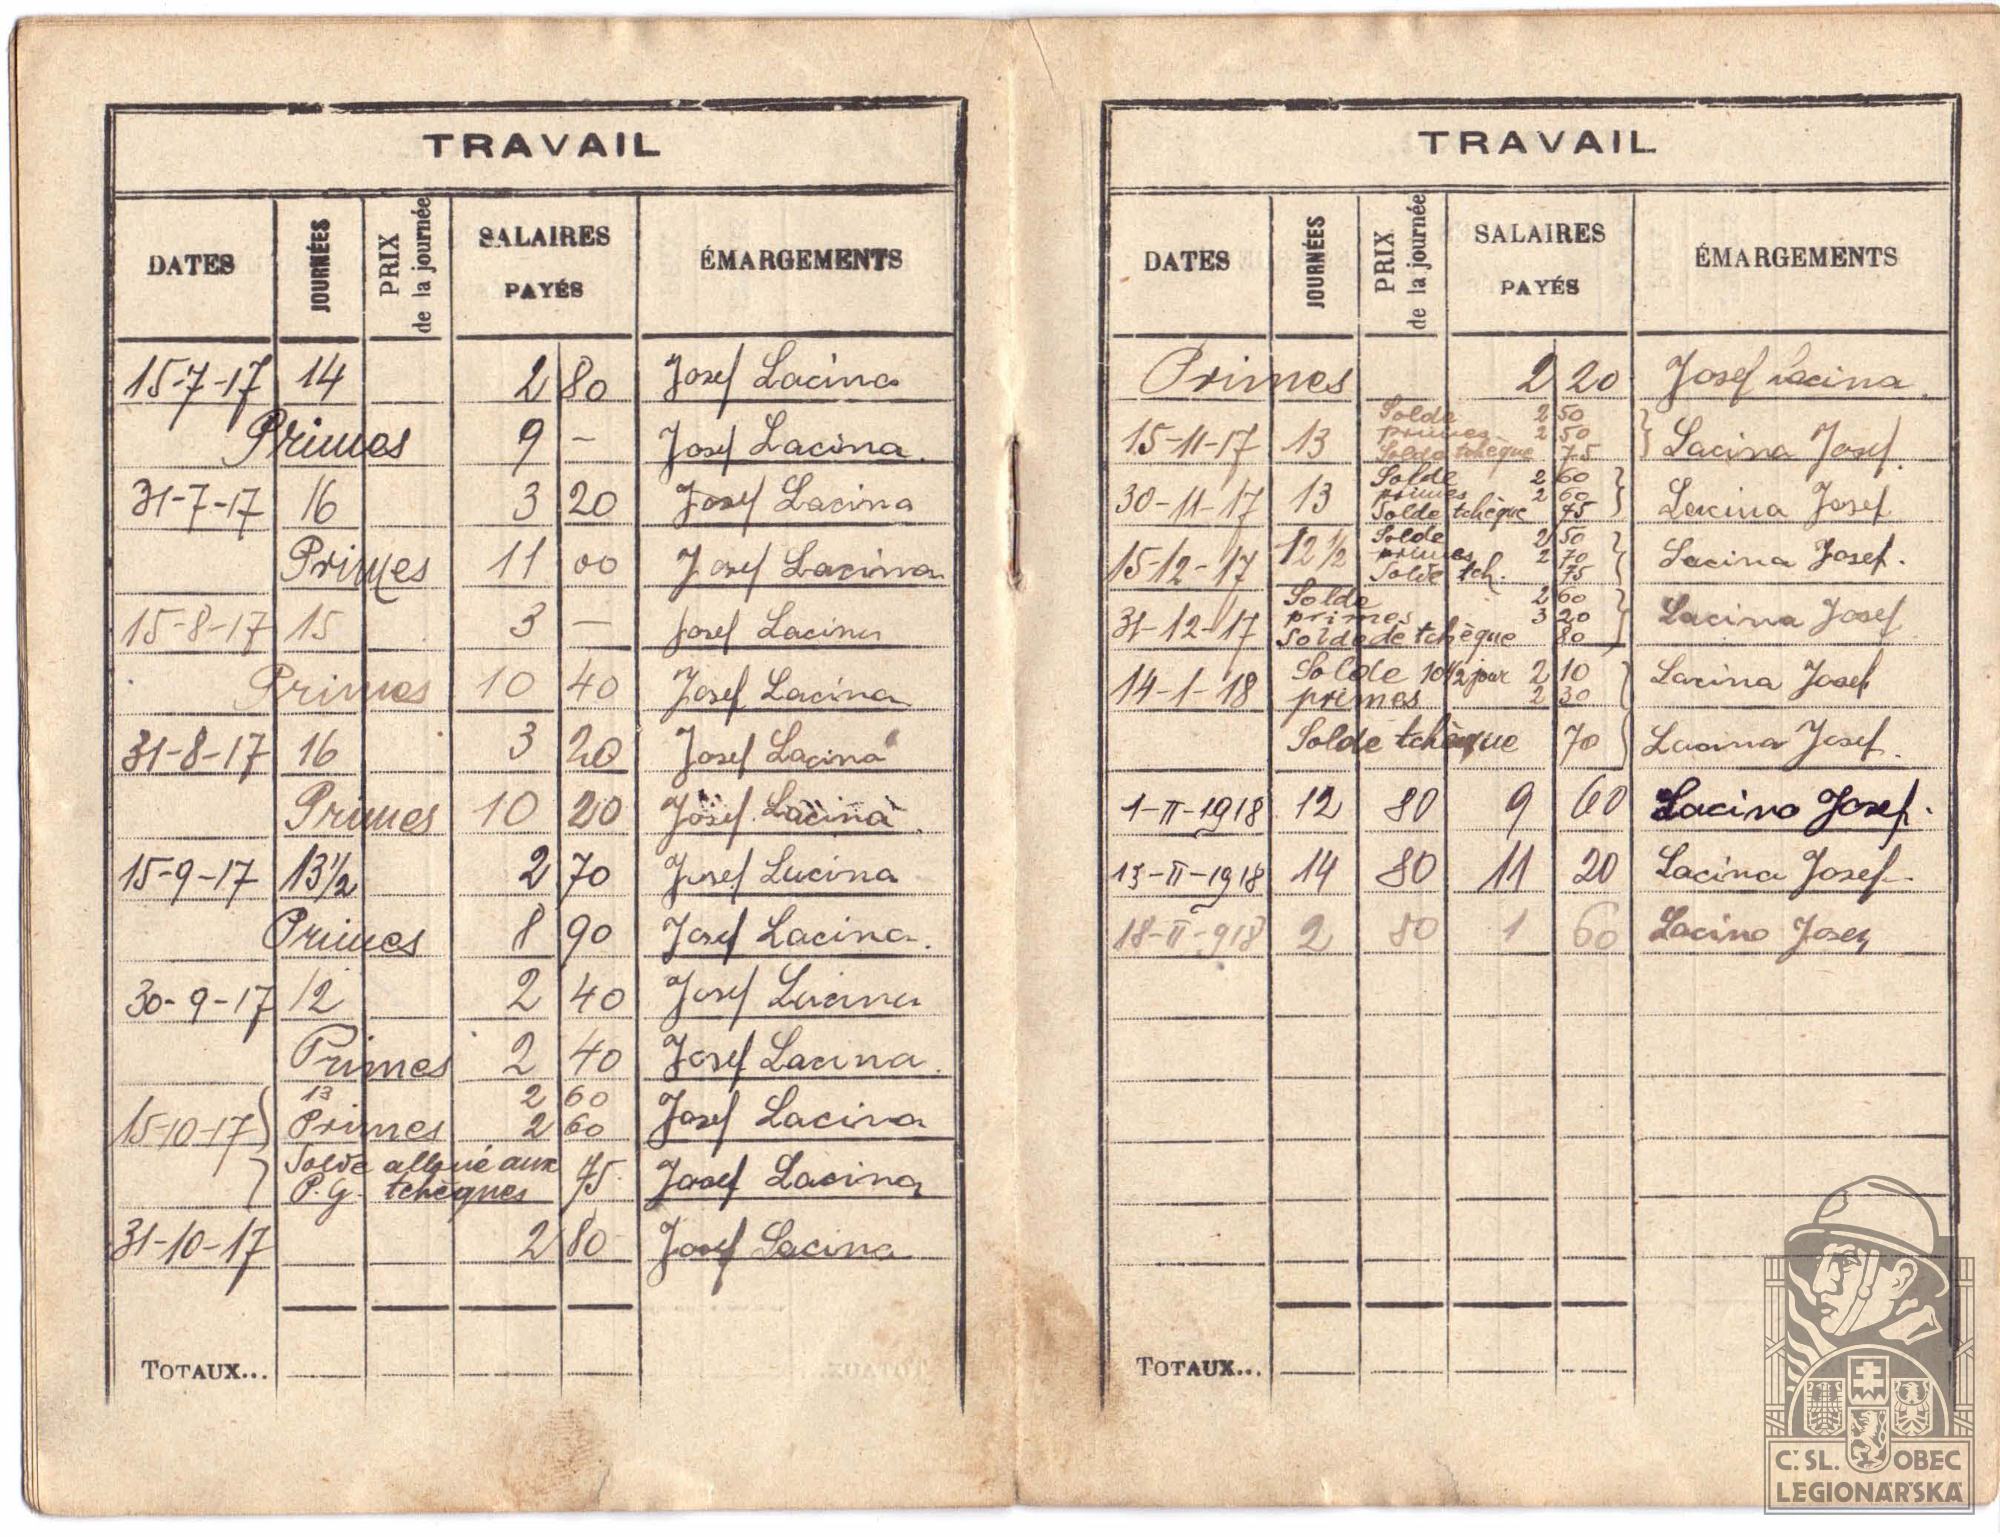 TRAVAIL
DATES JOURNÉES PRIX de la journée SALAIRES PAYÉS ÉMARGEMENTS
15-7-17 14 2 80 Josef Lacina
Primes 9 - Josef Lacina.
31-7-17 16 3 20 Josef Lacina
Primes 11 00 Josef Lacina
15-8-17 15 3 - Josef Lacina
Primes 10 40 Josef Lacina
31-8-17 16 3 20 Josef Lacina
Primes 10 20 Josef Lacina.
15-9-17 13 1/2 2 70 Josef Lacina
Primes 8 90 Josef Lacina.
30-9-17 12 2 40 Josef Lacina
Primes 2 40 Josef Lacina.
13 2 60
15-10-17 Primes 2 60 Josef Lacina
Solde alloué aux
P.G. tchèques 75 Josef Lacina
31-10-17 2 80 Josef Lacina
TOTAUX...
TRAVAIL
DATES JOURNÉES PRIX de la journée SALAIRES PAYÉS ÉMARGEMENTS
Primes 2 20 Josef Lacina.
Solde 2 50
15-11-17 13 primes 2 50 } Lacina Josef.
Solde tchèque 75
Solde 2 60
30-11-17 13 primes 2 60 } Lacina Josef
Solde tchèque 75
Solde 2 50
15-12-17 12 1/2 primes 2 70 } Lacina Josef.
Solde tch. 75
Solde 2 60
31-12-17 primes 3 20 } Lacina Josef
Solde de tchèque 80
Solde 10 1/2 jour 2 10
14-1-18 primes 2 30 } Lacina Josef
Solde tchèque 70 } Lacina Josef.
1-II-1918 12 80 9 60 Lacina Josef.
15-II-1918 14 80 11 20 Lacina Josef.
18-II-918 2 80 1 60 Lacina Josef
TOTAUX...
Č.SL. OBEC
LEGIONÁŘSKÁ